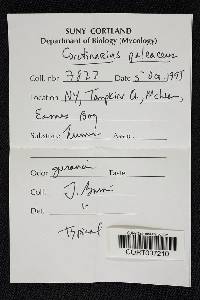 SUNY CORTLAND
Department of Biology (Mycology)
Cortinarius paleaceus
Coll. nbr 7827 Date 5 Oct. 1995
Location NY, Tompkins Co., McLean,
Eames Bog
Substrate humus Assoc.
Odor Taste
Coll. J.
Det. "
typical
CORT007210